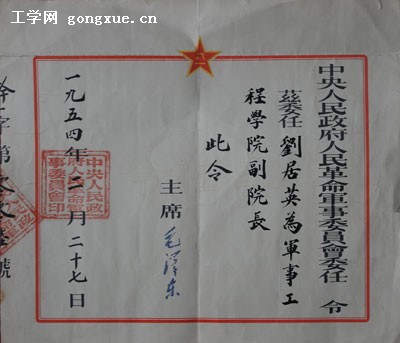 工学网 gongxue.cn
中央人民政府人民革命軍事委員會委任令
茲委任劉居英為軍事工
程學院副院長
此令
主席
毛澤东
中央人民政
府人民革命軍
事委員會印
一九五四年二月二十七日
字第
號